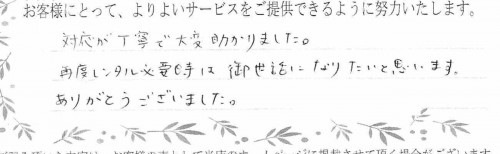 お客様にとって、よりよいサービスをご提供できるように努力いたします。
対応が丁寧で大変助かりました。
再度レンタル必要時は御世話になりたいと思います。
ありがとうございました。